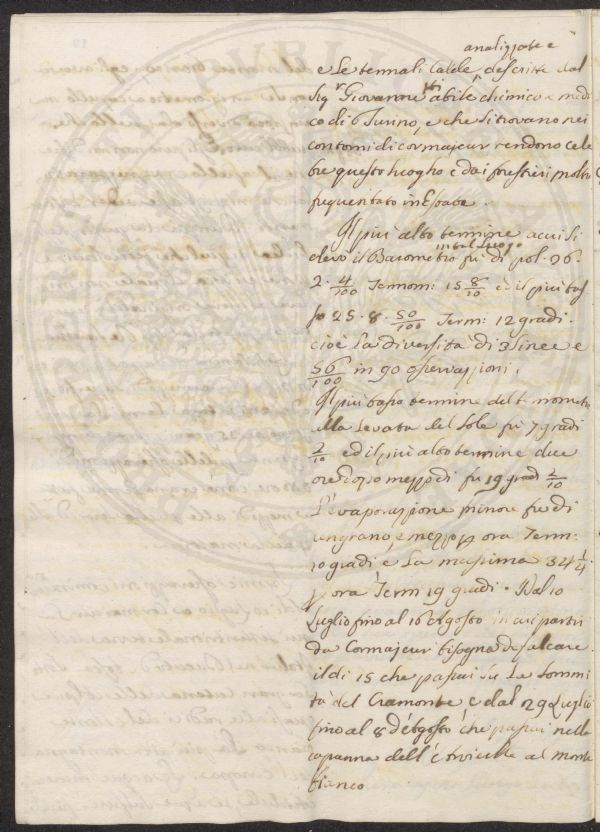 analizzate e
e Le termali Calde, descritte dal
Sig.r Giovanne abile chimico e medi
co di Turino, e che si trovano nei
contorni di cormajeur rendono cele
bre questo luogho e dai forestieri molto
frequentato in Estate.
Il piu alto termine a cui si
in tal Luogo
elevò il Barometro fù di pol. 26.
2. 4/100 Termom: 15 8/10 e il piu bas
so 25. 8. 50/100 Term: 12 gradi.
cioè La diversità di 3 linee e
56/100 in 90 osservazzioni.
Il piu basso termine del termometro
alla Levata del Sole fu 7 gradi
2/10 ed il piu alto termine due
ore dopo mezzodi fu 19 gradi 2/10
L'evaporazzione minore fu di
un grano, e mezzo p ora Term:
10 gradi e La massima 34 1/4
p ora Term: 19 gradi. Dal 10
Luglio fino al 16 Agosto in cui partii
da Cormajeur bisogna defalcare
il di 15 che passai su La Sommi
tà del Cramonte, e dal 29 Luglio
fino al 8 d'Agosto che passai nella
capanna dell' al monte
bianco